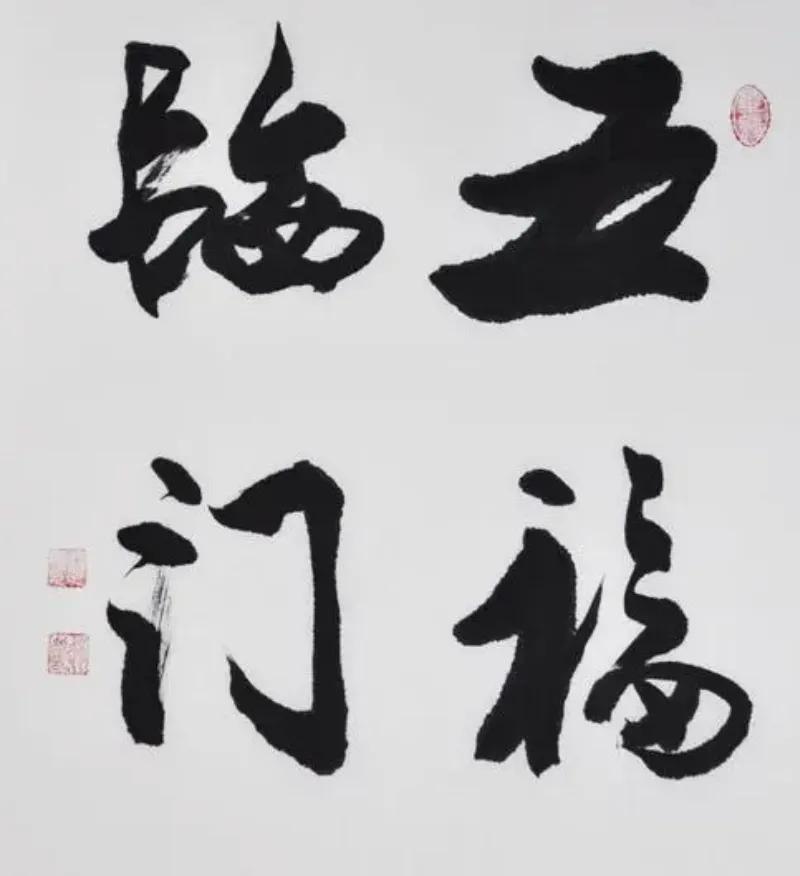 五福
临门